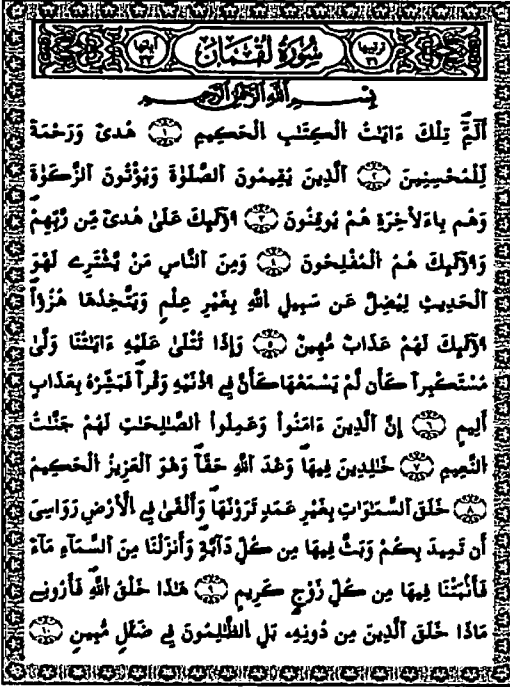 ترتيبها ٣١ سُورَةُ لُقْمَانَ آياتها ٣٣
بِسْمِ اللَّهِ الرَّحْمَٰنِ الرَّحِيمِ
اَلَٓمِّٓ تِلْكَ ءَايَٰتُ اُ۬لْكِتَٰبِ اِ۬لْحَكِيمِ ١ هُدىٗ وَرَحْمَةٗ
لِّلْمُحْسِنِينَ ٢ اَ۬لذِينَ يُقِيمُونَ اَ۬لصَّلَوٰةَ وَيُوتُونَ اَ۬لزَّكَوٰةَ
وَهُم بِالَاخِرَةِ هُمْ يُوقِنُونَ ٣ أُوْلَٰٓئِكَ عَلَىٰ هُدىٗ مِّن رَّبِّهِمْ
وَأُوْلَٰٓئِكَ هُمُ اُ۬لْمُفْلِحُونَ ٤ وَمِنَ اَ۬لنَّاسِ مَنْ يَّشْتَرِے لَهْوَ
اَ۬لْحَدِيثِ لِيُضِلَّ عَن سَبِيلِ اِ۬للَّهِ بِغَيْرِ عِلْمٖ وَيَتَّخِذُهَا هُزُؤاً
أُوْلَٰٓئِكَ لَهُمْ عَذَابٞ مُّهِينٞ ٥ وَإِذَا تُتْلَىٰ عَلَيْهِ ءَايَٰتُنَا وَلَّىٰ
مُسْتَكْبِراٗ كَأَن لَّمْ يَسْمَعْهَا كَأَنَّ فِےٓ أُذْنَيْهِ وَقْراٗ فَبَشِّرْهُ بِعَذَابٍ
أَلِيمٍ ٦ إِنَّ اَ۬لذِينَ ءَامَنُواْ وَعَمِلُواْ اُ۬لصَّٰلِحَٰتِ لَهُمْ جَنَّٰتُ
اُ۬لنَّعِيمِ ٧ خَٰلِدِينَ فِيهَا وَعْدَ اَ۬للَّهِ حَقّاٗ وَهُوَ اَ۬لْعَزِيزُ اُ۬لْحَكِيمُ
٨ خَلَقَ اَ۬لسَّمَٰوَٰتِ بِغَيْرِ عَمَدٖ تَرَوْنَهَا وَأَلْقَىٰ فِے اِ۬لْأَرْضِ رَوَٰسِيَ
أَن تَمِيدَ بِكُمْ وَبَثَّ فِيهَا مِن كُلِّ دَآبَّةٖ وَأَنزَلْنَا مِنَ اَ۬لسَّمَآءِ مَآءٗ
فَأَنۢبَتْنَا فِيهَا مِن كُلِّ زَوْجٖ كَرِيمٍ ٩ هَٰذَا خَلْقُ اُ۬للَّهِ فَأَرُونِے
مَاذَا خَلَقَ اَ۬لذِينَ مِن دُونِهِۦ بَلِ اِ۬لظَّٰلِمُونَ فِے ضَلَٰلٖ مُّبِينٖ ١٠